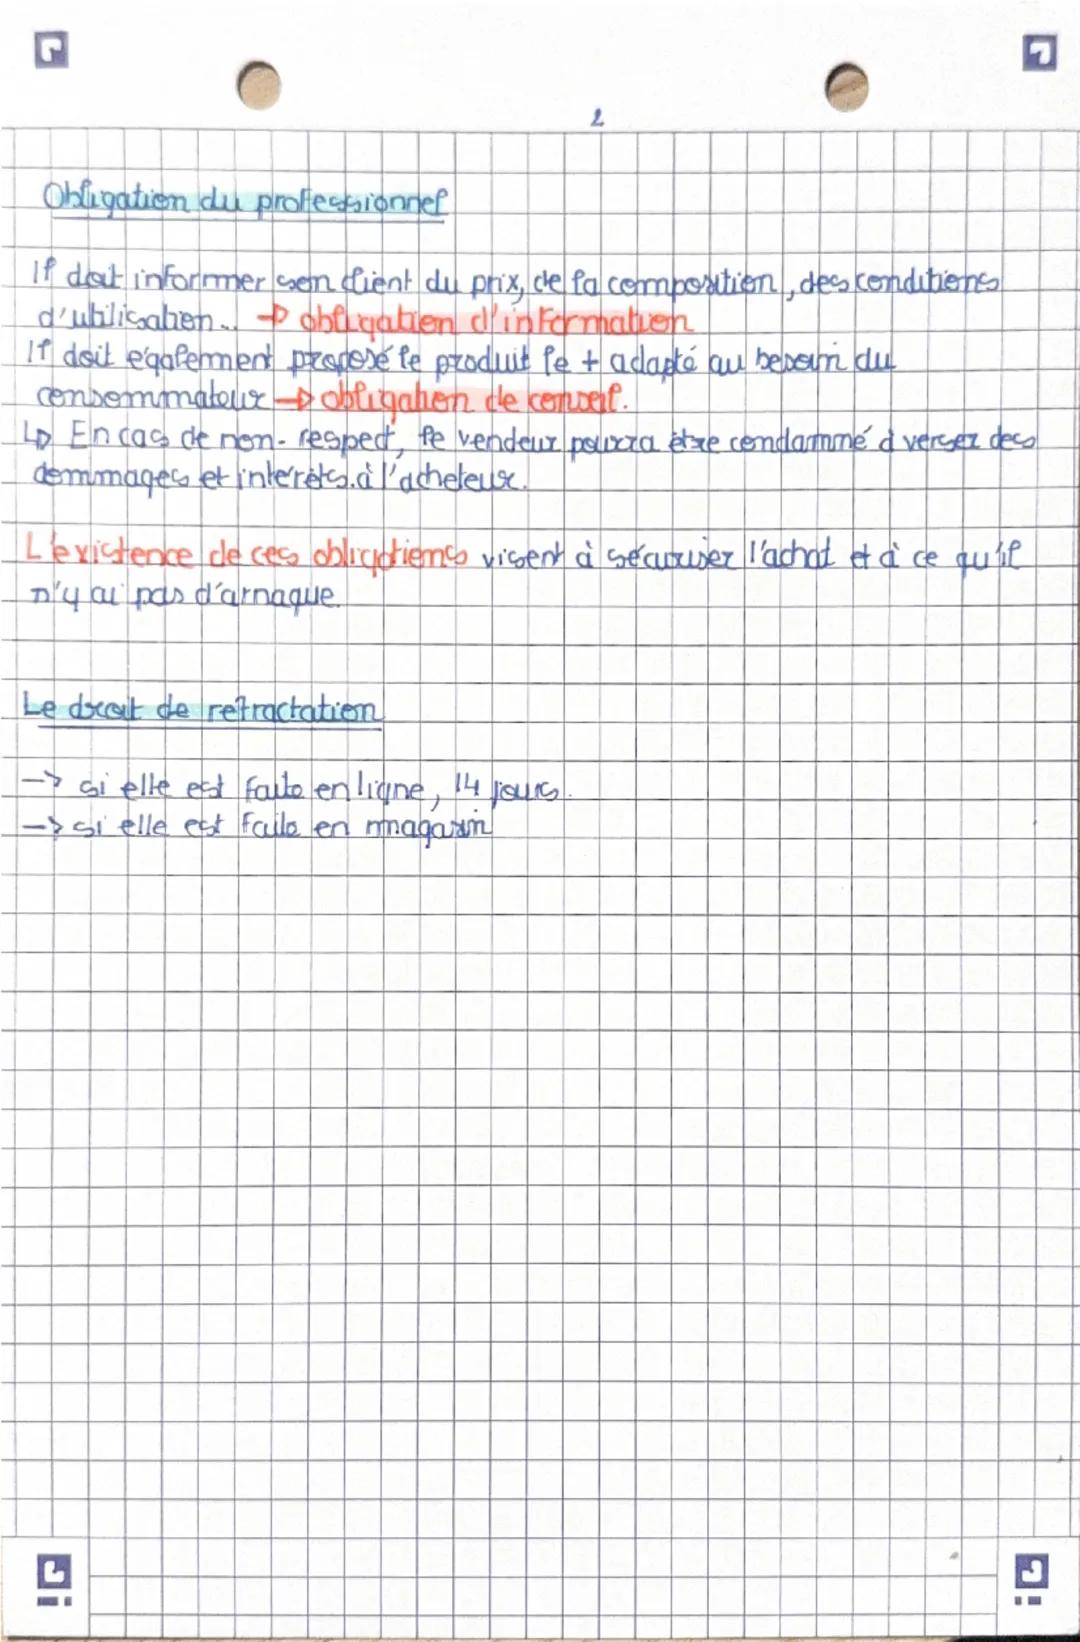 2
Obligation du professionnel
Il doit informer son client du prix, de la composition, des conditions
d'utilisation... → obligation d'information
Il doit également proposé le produit le + adapté au besoin du
consommateur → obligation de conseil.
↳ En cas de non-respect, le vendeur pourra être condammé à verser des
dommages et intérêts à l'acheteur.
L'existence de ces obligations visent à sécuriser l'achat et à ce qu'il
n'y ai pas d'arnaque.
Le droit de retractation
→ si elle est faite en ligne, 14 jours.
→ si elle est faite en magasin